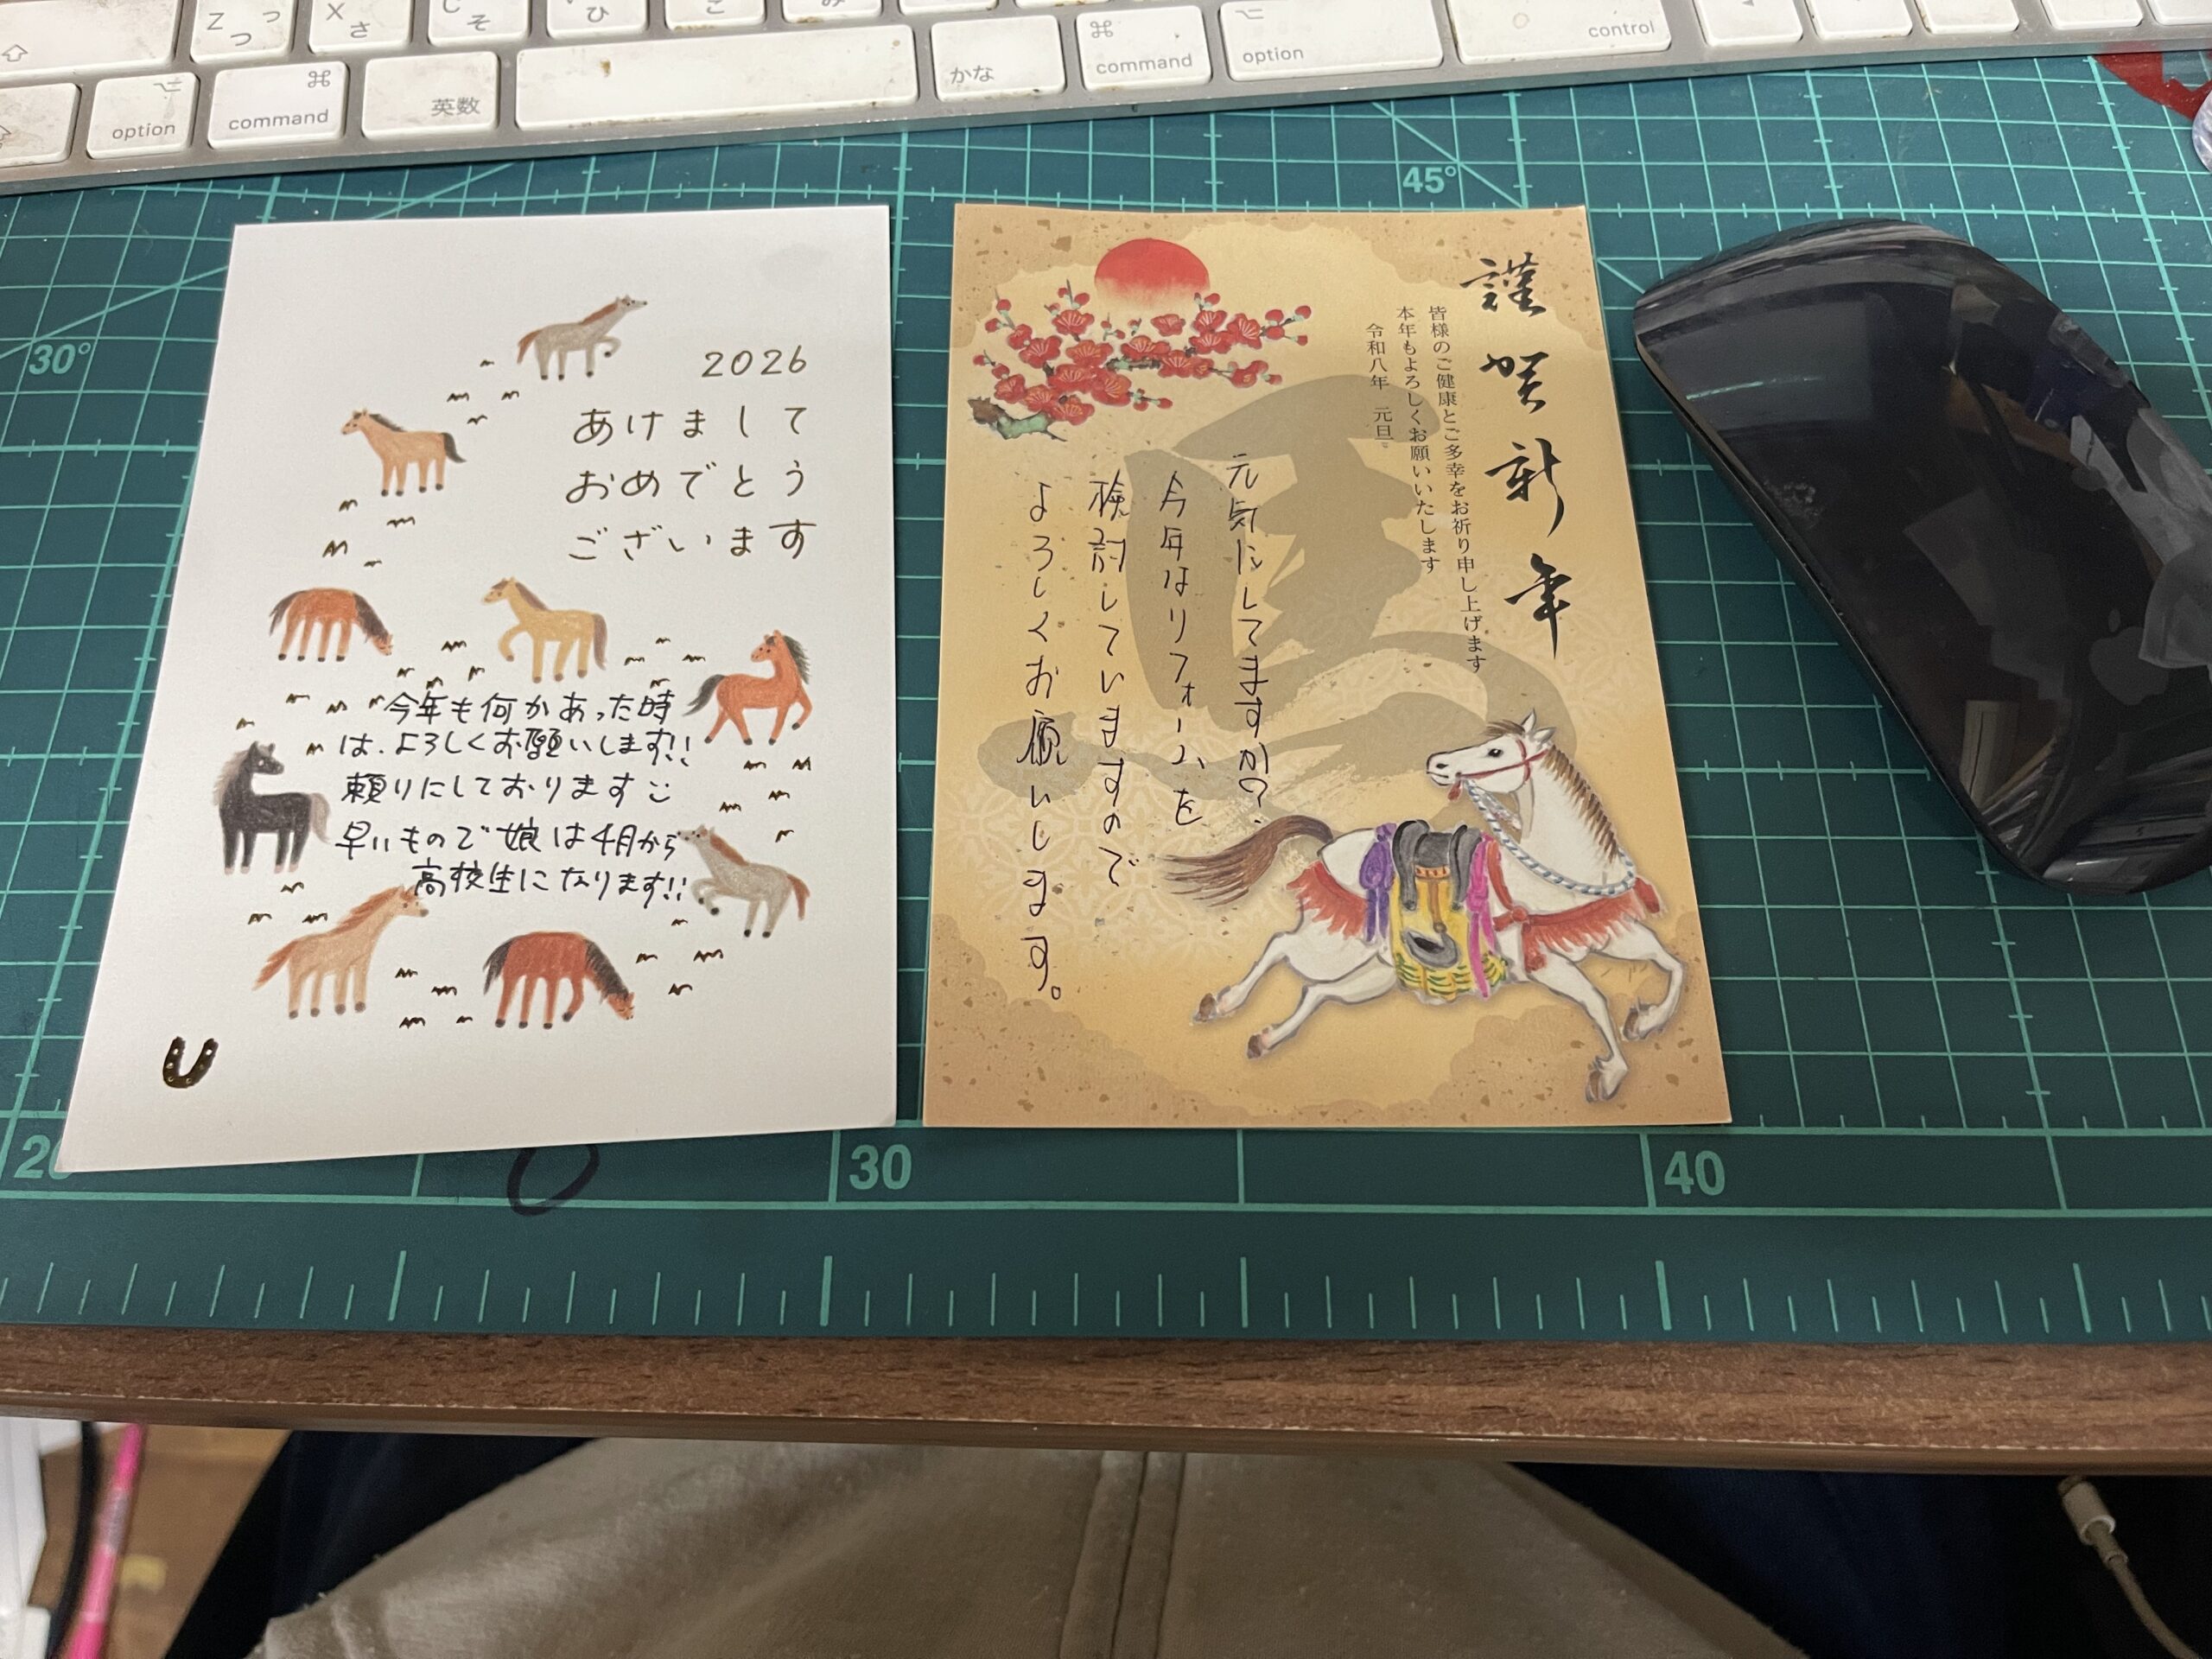 Z
つ
X
さ
そ
ひ
こ
option
⌘
command
英数
かな
⌘
command
option
control
45°
30°
2026
あけまして
おめでとう
ございます
今年も何かあった時
は、よろしくお願いします!!
頼りにしております
早いもので娘は4月から
高校生になります!!
謹賀新年
皆様のご健康とご多幸をお祈り申し上げます
本年もよろしくお願いいたします
令和八年 元旦
元気にしてますか?
今年はリフォームを
検討していますので
よろしくお願いします。
20
30
40